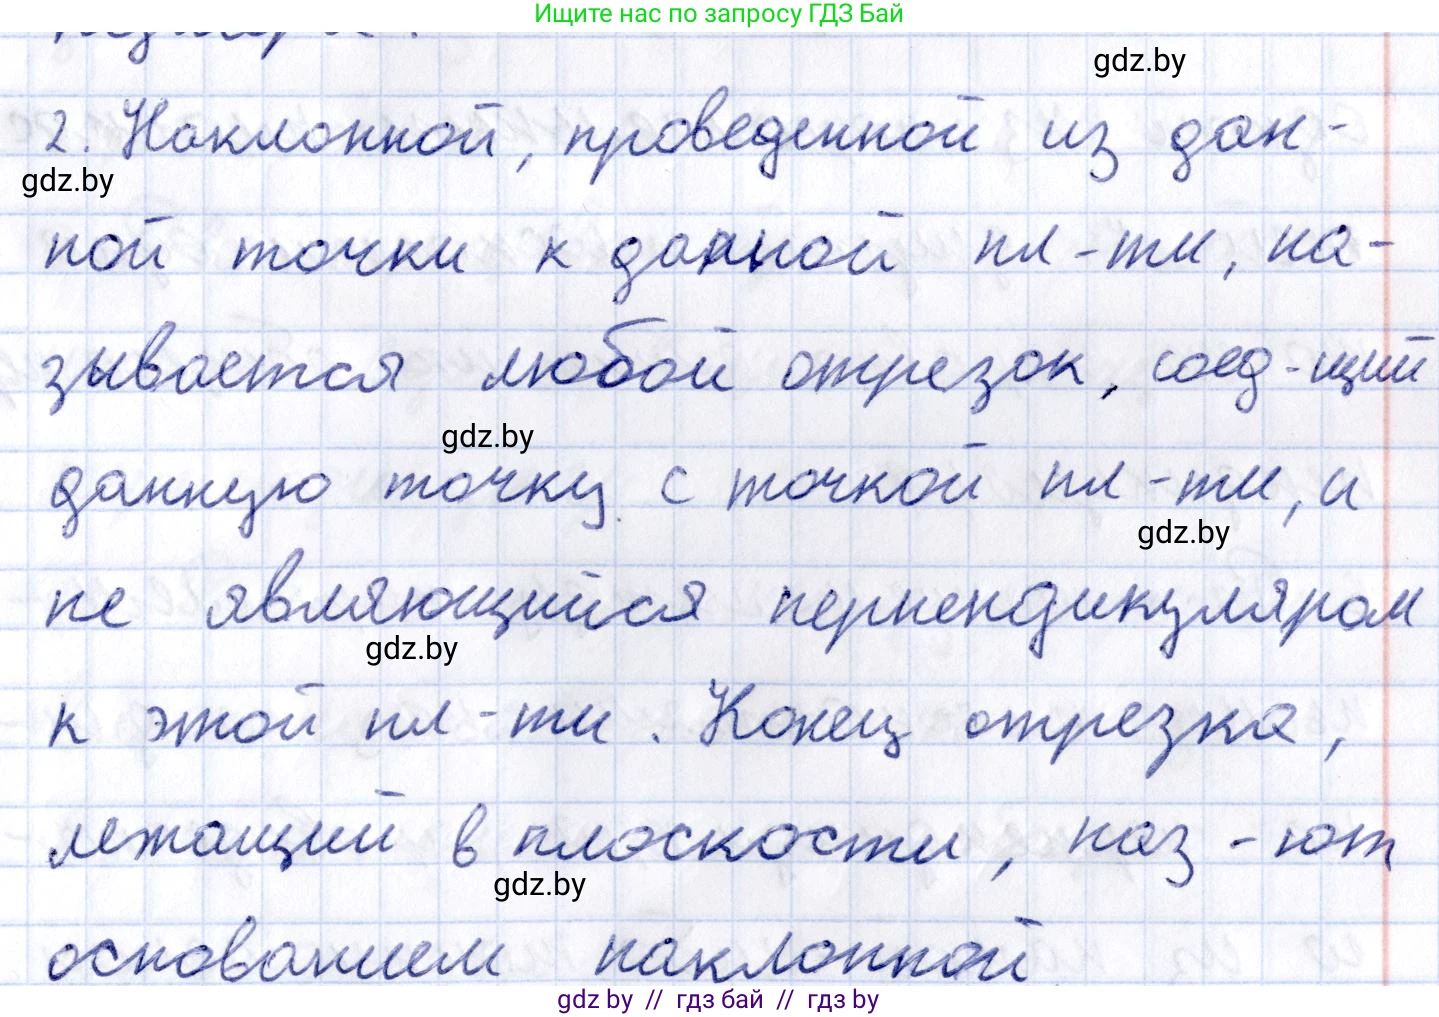 Ищите нас по запросу ГДЗ Бай
gdz.by
2. Наклонной, проведенной из дан-
gdz.by
ной точки к данной пл-ти, на-
зывается любой отрезок, соед-щий
gdz.by
данную точку с точкой пл-ти, и
gdz.by
не являющийся перпендикуляром
gdz.by
к этой пл-ти. Конец отрезка,
лежащий в плоскости, наз-ют
gdz.by
основанием наклонной
gdz by // гдз бай // гдз by